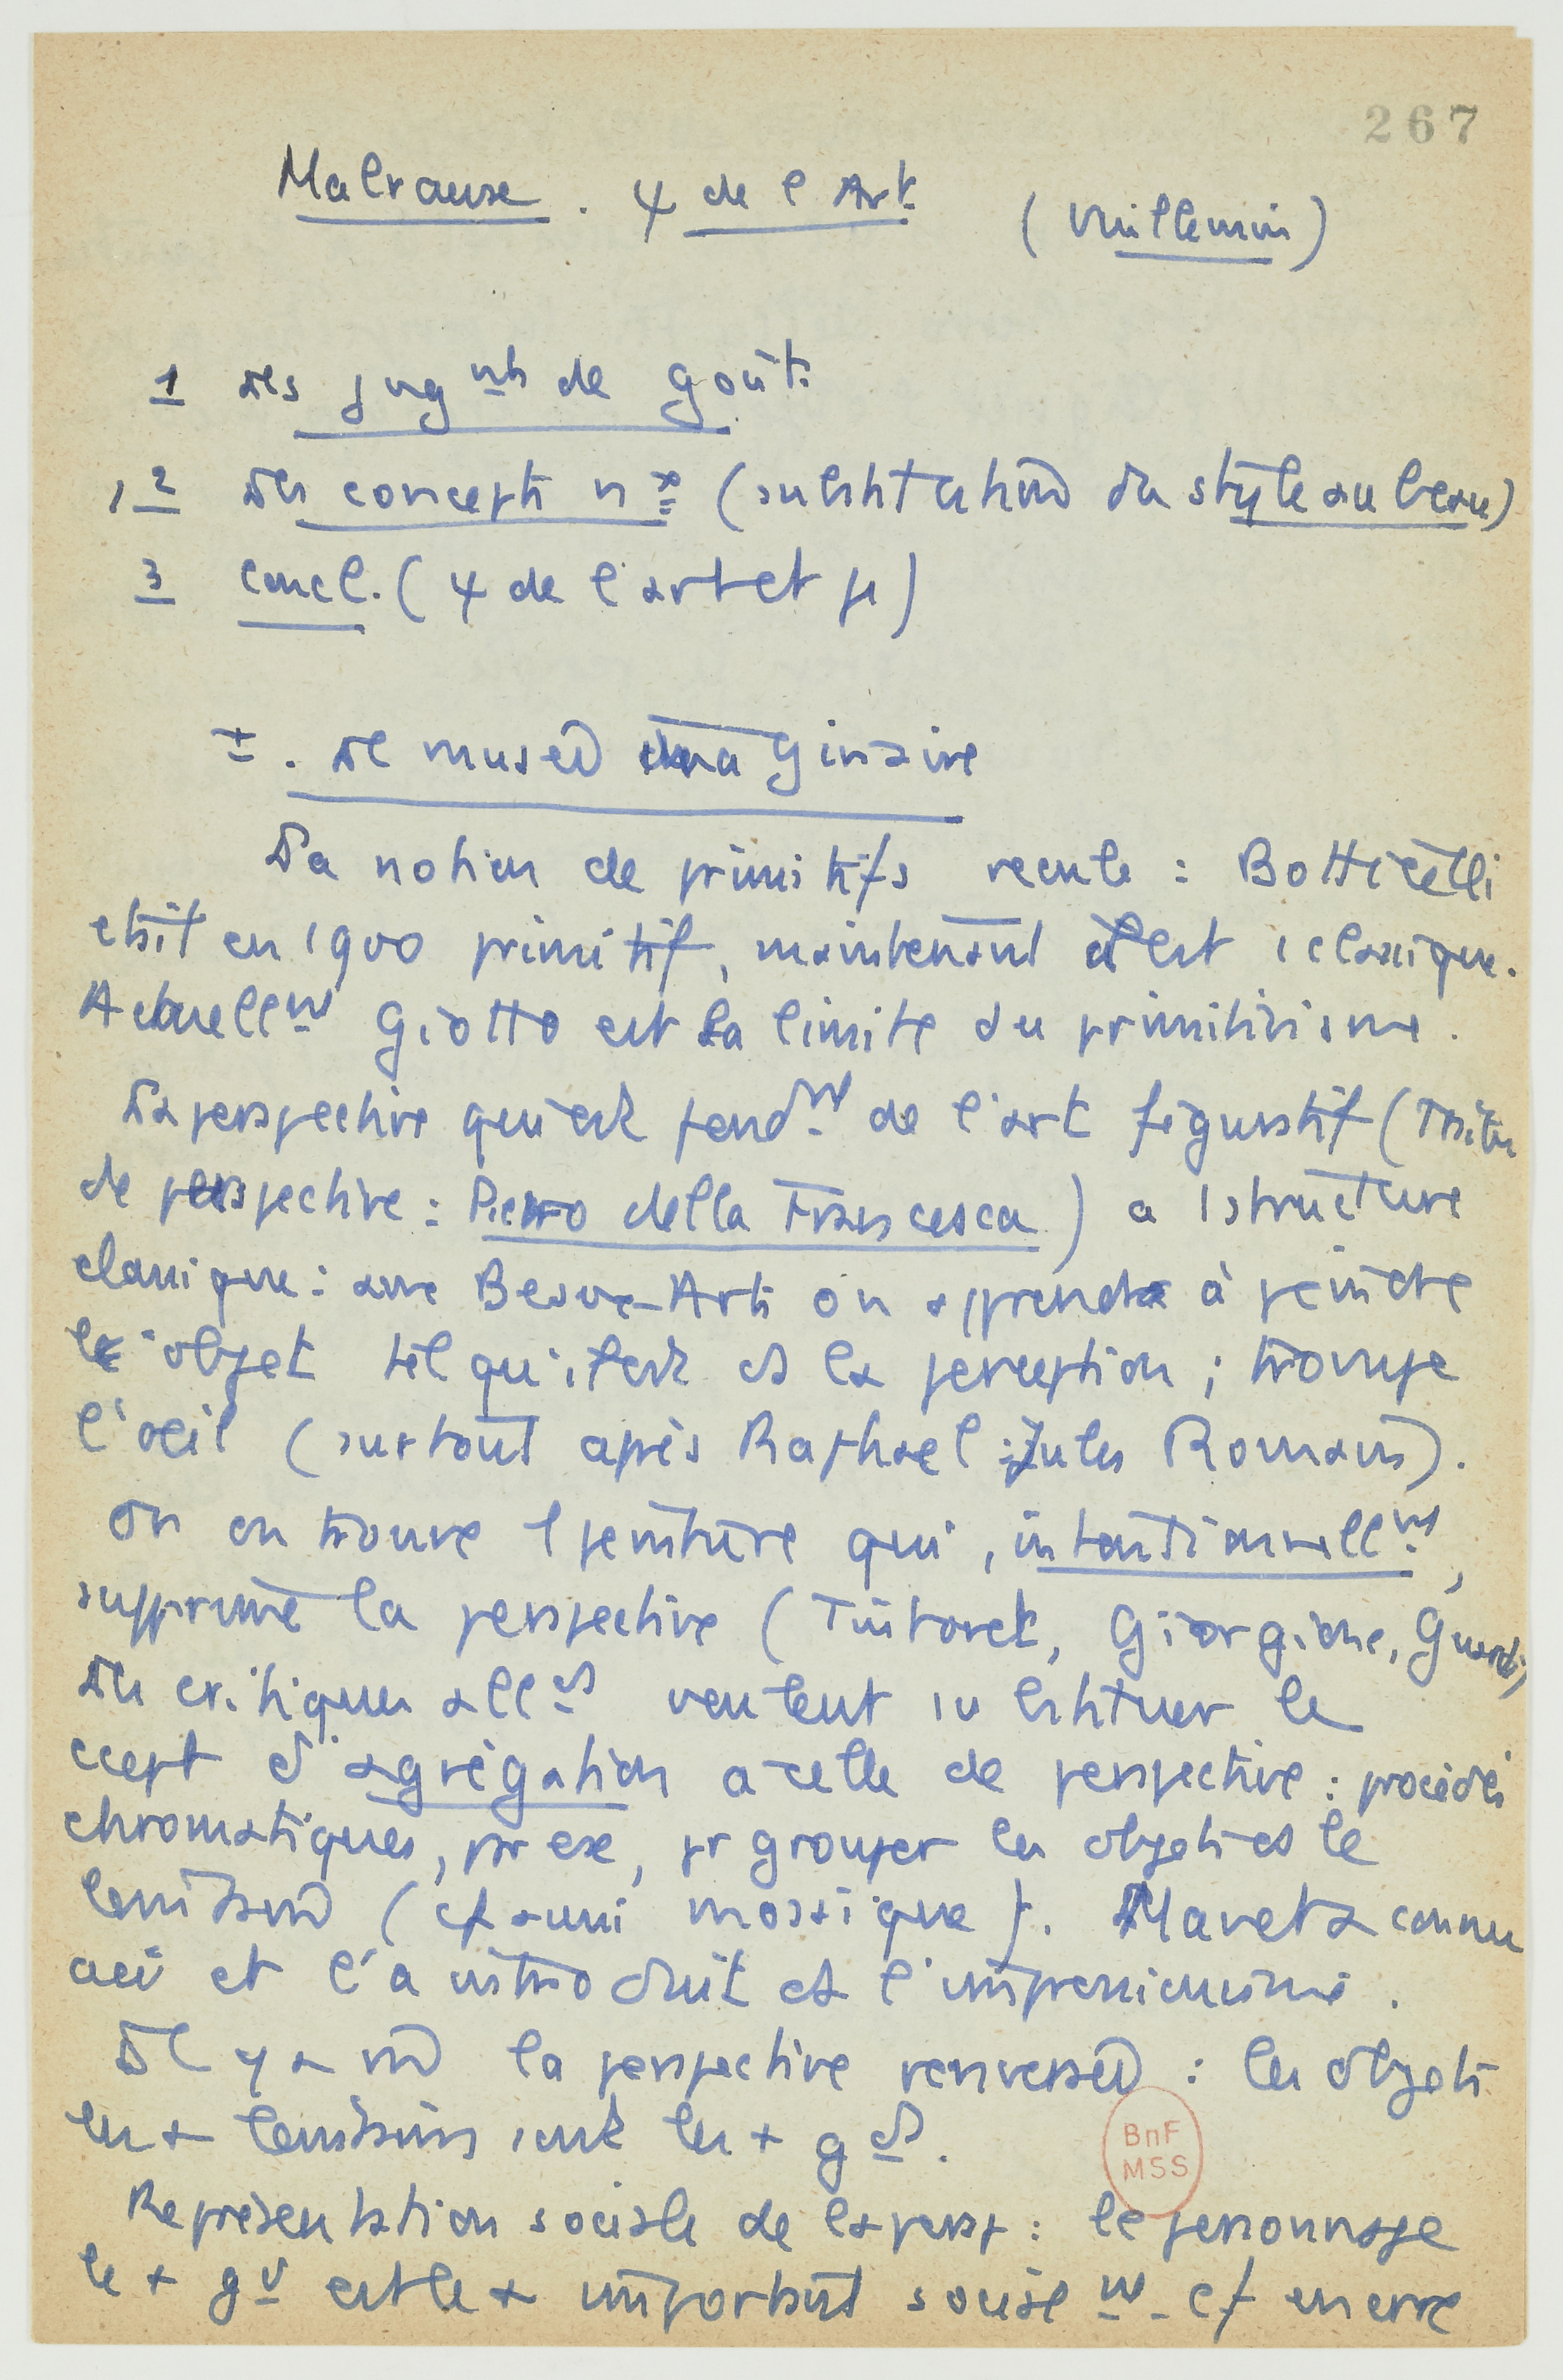 267
Malraux. ψ de l'Art (Vuillemin)
1 Les jugnts de goût.
2 Des concepts nx (substitution du style au beau)
3 Concl. (ψ de l'art et φ)
I. Le musée imaginaire
La notion de primitifs recule : Botticelli
était en 1900 primitif, maintenant il est 1 classique.
Actuellnt Giotto est la limite du primitivisme.
La perspective qui est fondnt de l'art figuratif (Traité
de perspective : Piero della Francesca) a 1 structure
classique : aux Beaux-Arts on apprend à peindre
l'objet tel qu'il est ds la perception ; trompe
l'oeil (surtout après Raphael : Jules Romain).
On en trouve 1 peinture qui, intentionnellnt,
supprime la perspective (Tintoret, Giorgione, Guardi)
Des critiques allds veulent substituer le
ccept d'agrégation à celle de perspective : procédés
chromatiques, par ex, pr grouper les objets ds le
lointain (cf aussi mosaique). Manet a connu
ceci et l'a introduit ds l'impressionisme.
Il y a la perspective renversée : les objets
les + lointains sont les + gds.
Représentation sociale de la persp : le personnage
le + gd est le + important socialnt. cf encore
BnF
MSS